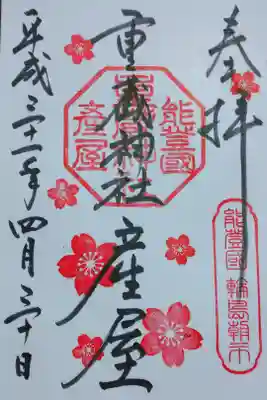 奉拝
能登國 輪島朝市
重蔵神社 産屋
能登國
産屋
平成三十一年四月三十日